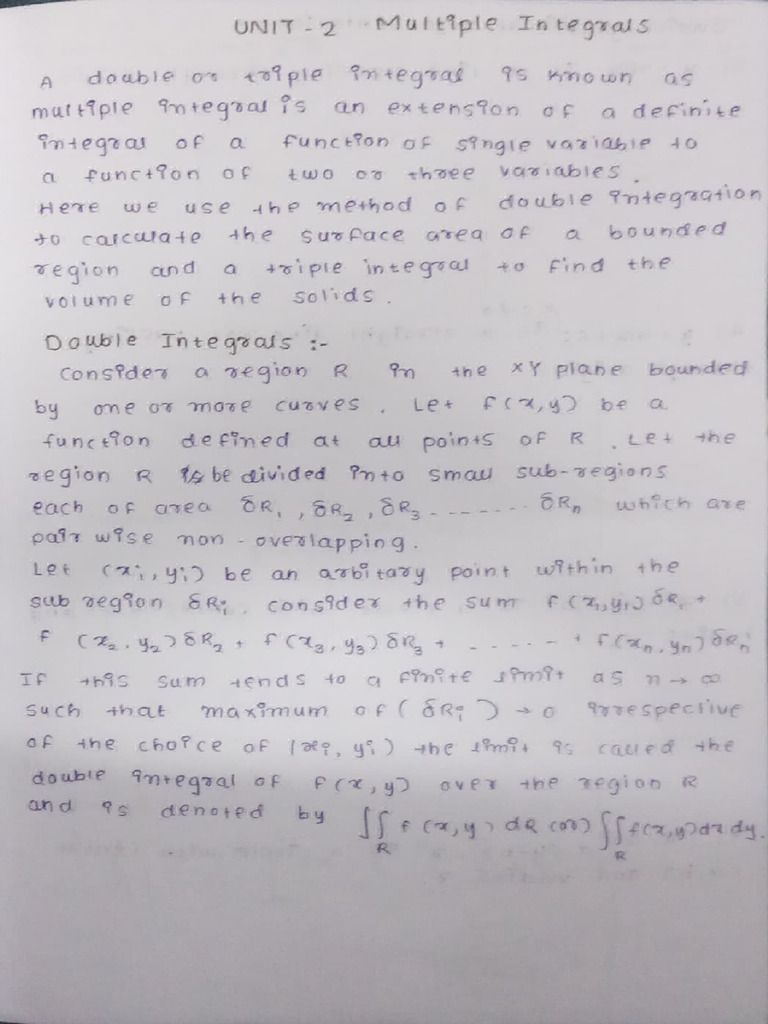 UNIT-2 Multiple Integrals
A double or triple integral is known as
multiple integral is an extension of a definite
integral of a function of single variable to
a function of two or three variables.
Here we use the method of double integration
to calculate the surface area of a bounded
region and a triple integral to find the
volume of the solids.
Double Integrals :-
Consider a region R in the XY plane bounded
by one or more curves. Let f(x,y) be a
function defined at all points of R. Let the
region R be divided into small sub-regions
each of area δR₁, δR₂, δR₃ ------- δRₙ which are
pair wise non-overlapping.
Let (xᵢ, yᵢ) be an arbitary point within the
sub region δRᵢ. consider the sum f(x₁,y₁)δR₁ +
f (x₂, y₂)δR₂ + f(x₃, y₃)δR₃ + ----- + f(xₙ, yₙ)δRₙ
If this sum tends to a finite limit as n→∞
such that maximum of (δRᵢ) → 0 irrespective
of the choice of (xᵢ, yᵢ) the limit is called the
double integral of f(x,y) over the region R
and is denoted by ∬_R f(x,y) dR (or) ∬_R f(x,y)dx dy.